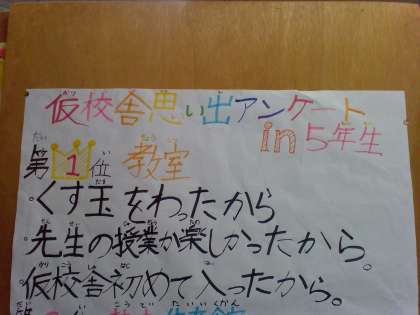 仮校舎思い出アンケート
in 5年生
第1位 教室
くす玉をわったから
先生の授業が楽しかったから。
仮校舎初めて入ったから。